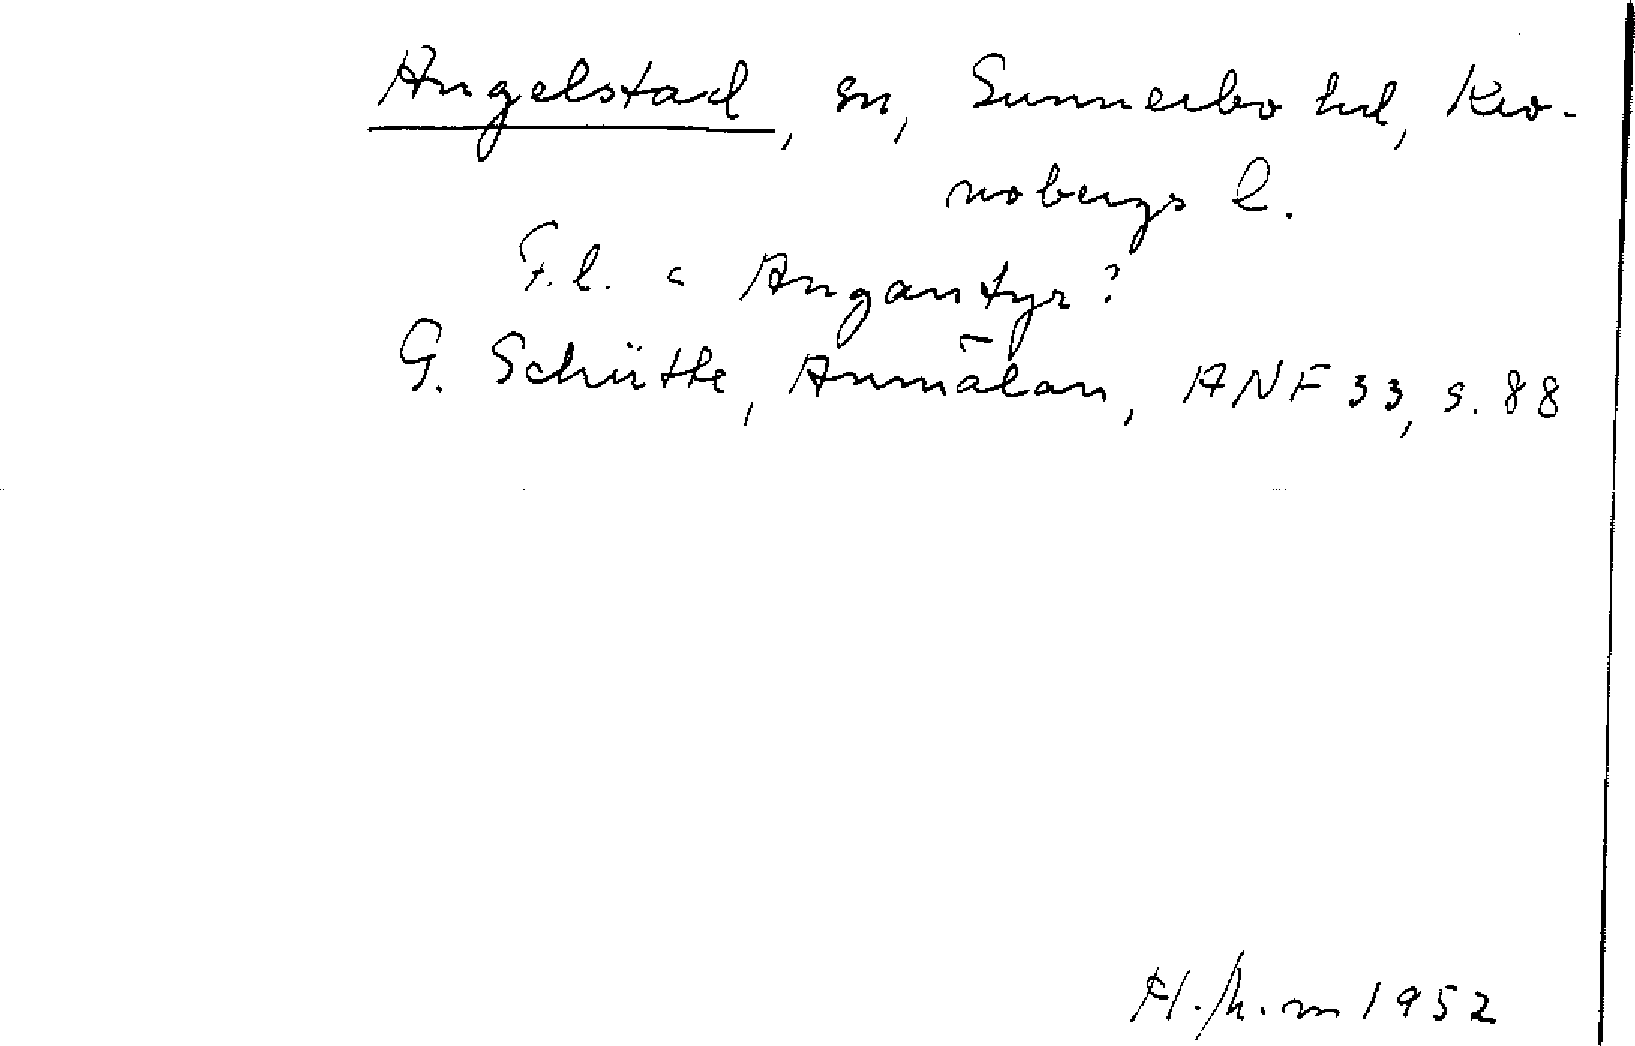 Angelstad, sn, Sunnerbo hd, Kro-
nobergs l.
F.l. < Angantyr?
G. Schütte, Anmälan, ANF 33, s. 88
1952